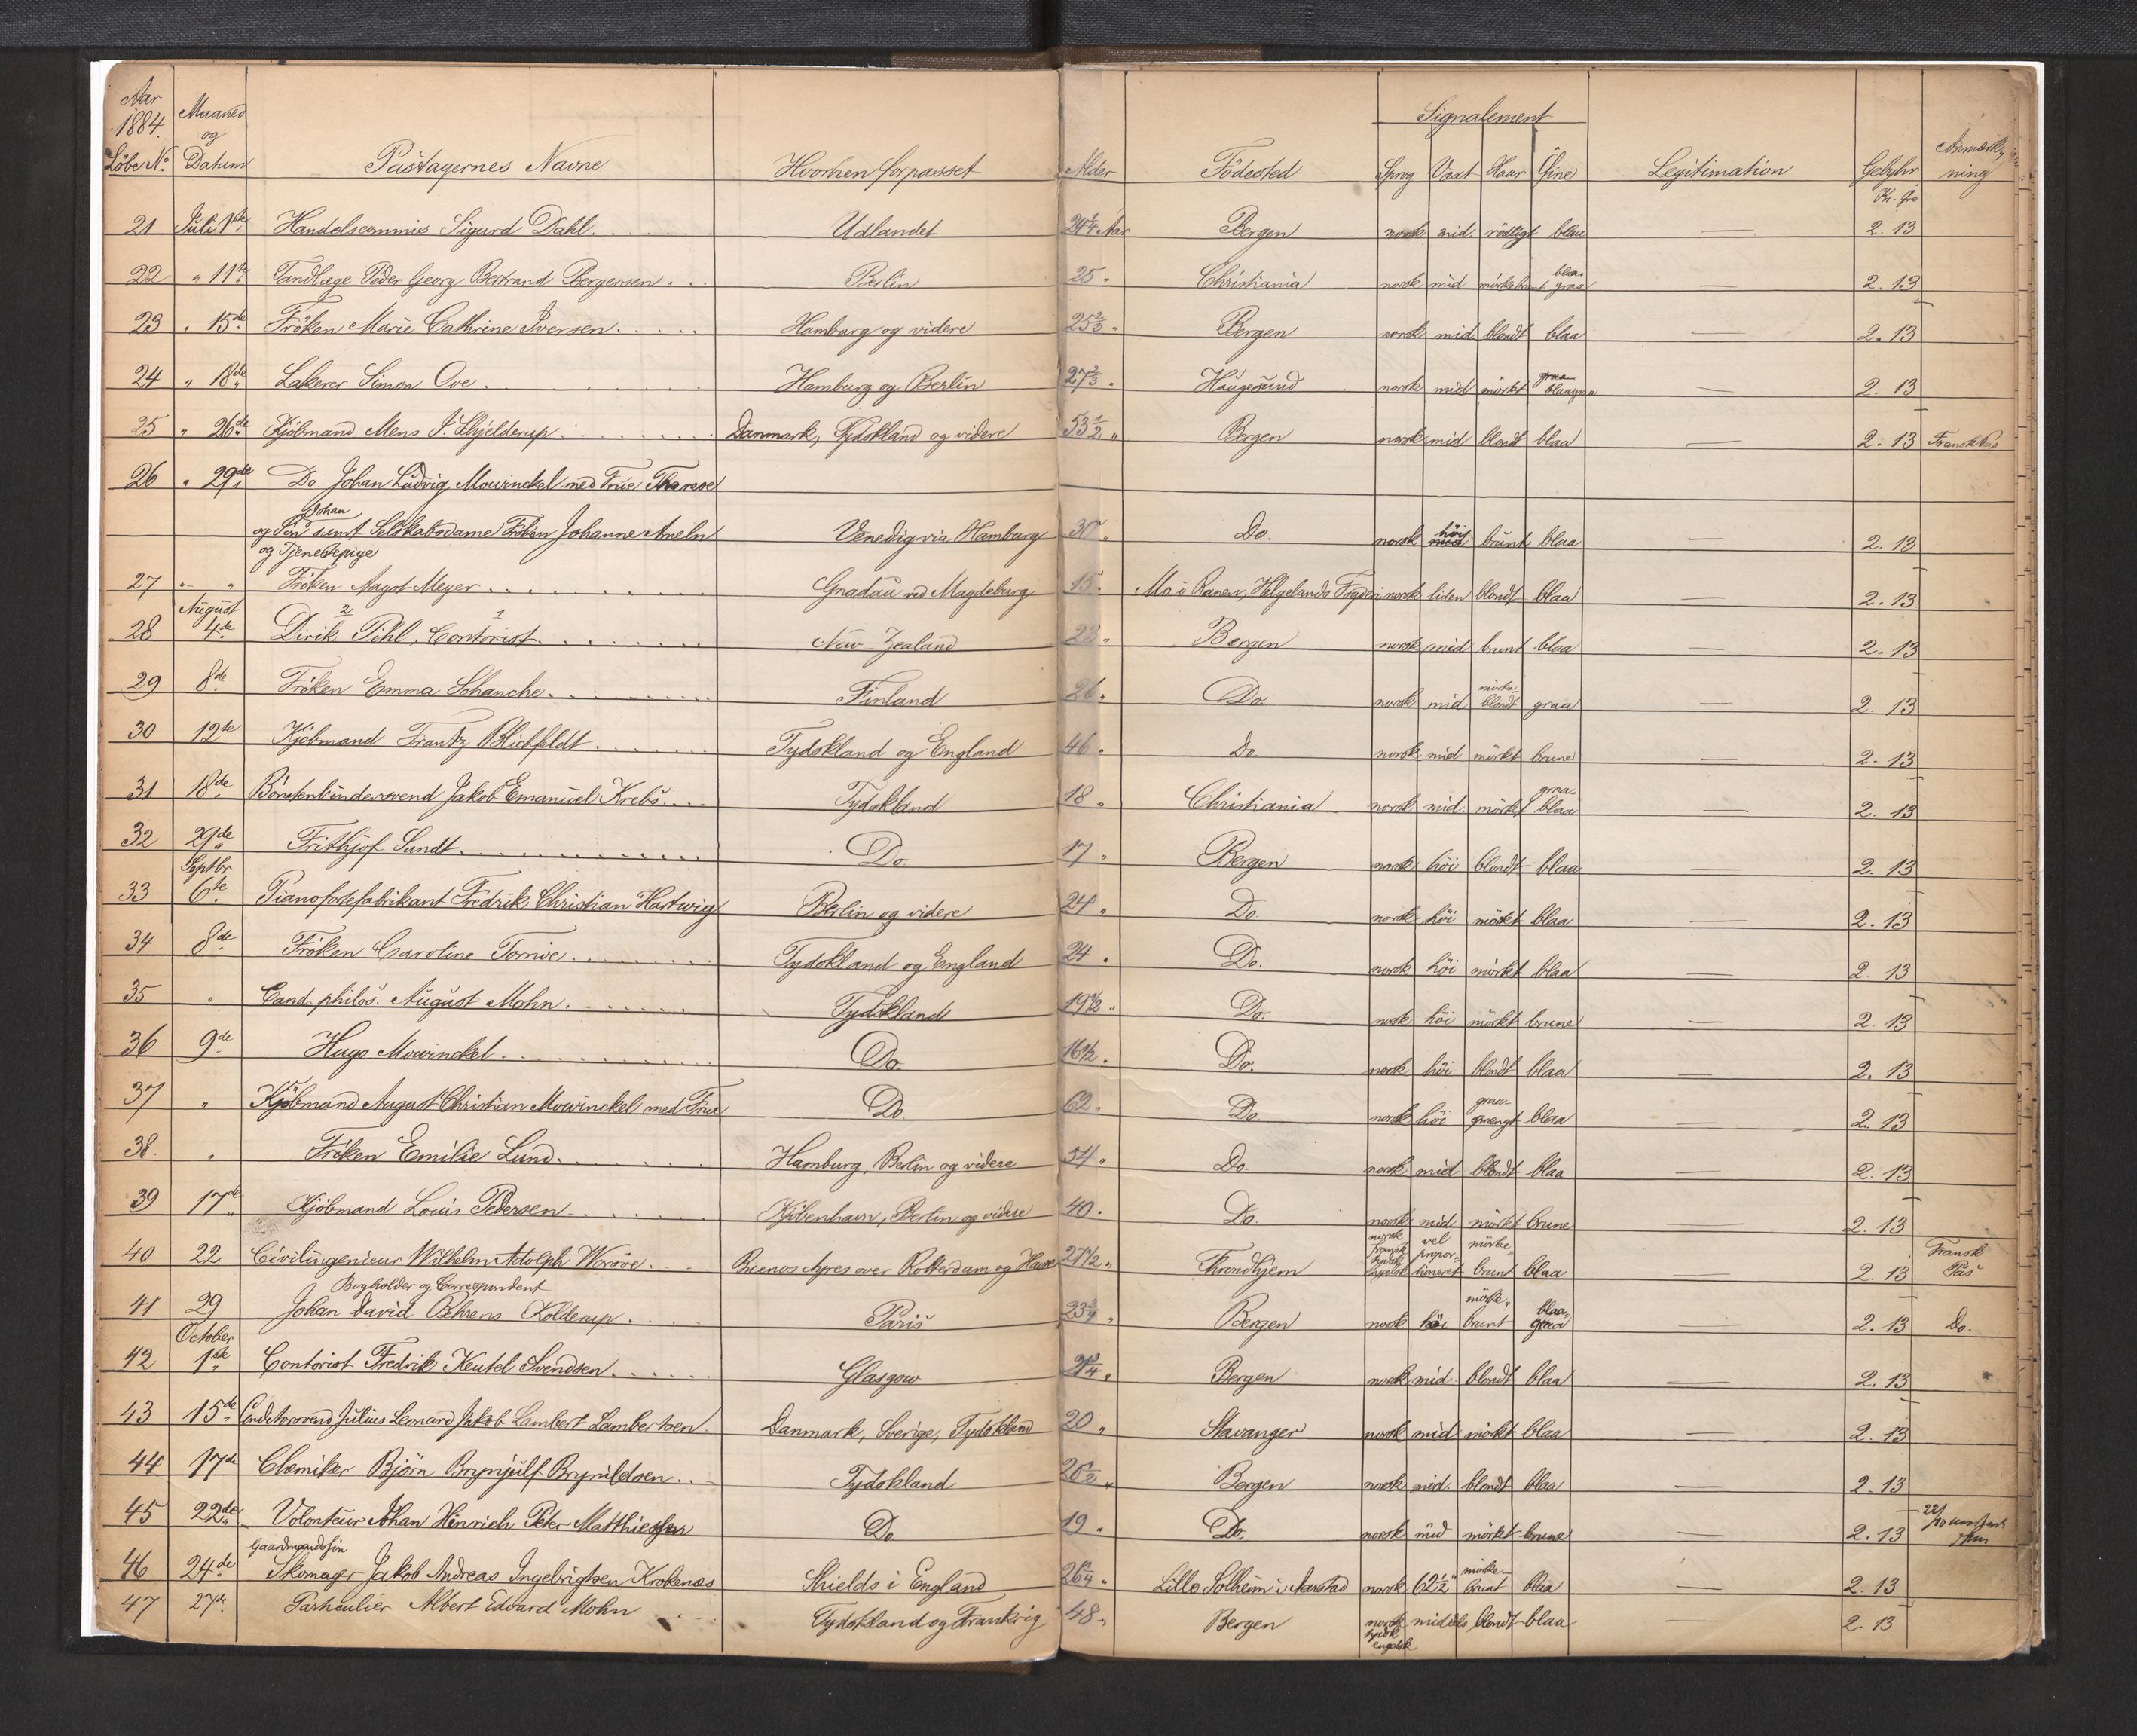 Aar 1884. Löbe No. Maaned og Datum Pastagernes Navne Hvorhen forpasset Alder Födested Signalement Sprog Væxt Haar Öine Legitimation Gebyhr Kr. Anmærkning
21 Juli 1ste Handelscommis Sigurd Dahl Udlandet 24 1/4 Aar Bergen norsk mid. rödligt blaa — 2.13
22 " 11te Tandlæge Peder Georg Bertrand Bergersen Berlin 25 " Christiania norsk mid mörkebrunt blaagraa — 2.13
23 " 15de Fröken Marie Cathrine Iversen Hamburg og videre 25 2/3 " Bergen norsk mid blondt blaa — 2.13
24 " 18de Lakerer Simon Ove Hamburg og Berlin 27 2/3 " Haugesund norsk mid mörkt blaagraa — 2.13
25 " 26de Kjöbmand Mens Schjelderup Danmark, Tydskland og videre 53 1/2 " Bergen norsk mid blondt blaa — 2.13 Fransk Pas
26 " 29de Do. Johan Ludvig Mowinckel med Frue Therese
og Sön Johan samt Selskabsdame Fröken Johanne Ameln Venedig via Hamburg 30 " Do. norsk höi brunt blaa — 2.13
og Tjenestepige
27 " " Fröken Aagot Meyer Gnadau ved Magdeburg 15 " Mo i Ranen, Helgelands Fogderi norsk liden blondt blaa — 2.13
28 August 4de Dirik Pihl, Contorist New-Zealand 23 " Bergen norsk mid brunt blaa — 2.13
29 8de Fröken Emma Schanche Finland 26 " Do. norsk mid mörkeblond graa — 2.13
30 12te Kjöbmand Frantz Blichfeldt Tydskland og England 46 " Do. norsk mid mörkt brune — 2.13
31 18de Börstenbindersvend Jakob Emanuel Krebs Tydskland 18 " Christiania norsk mid mörkt graablaa — 2.13
32 29de Frithjof Sundt Do. 17 " Bergen norsk höi blondt blaa — 2.13
33 Septbr 6te Pianofortefabrikant Fredrik Christian Hartwig Berlin og videre 24 " Do. norsk höi mörkt blaa — 2.13
34 8de Fröken Caroline Tornöe Tydskland og England 24 " Do. norsk höi mörkt blaa — 2.13
35 " Cand. philos. August Mohn Tydskland 19 1/2 " Do. norsk höi mörkt brune — 2.13
36 9de Hugo Mowinckel Do. 16 1/2 " Do. norsk höi blondt blaa — 2.13
37 " Kjöbmand August Christian Mowinckel med Frue Do. 62 " Do. norsk höi graasprængt blaa — 2.13
38. " Fröken Emilie Lund Hamburg, Berlin og videre 54 " Do. norsk mid blondt blaa — 2.13
39 17de Kjöbmand Louis Pedersen Kjöbenhavn, Berlin og videre 40 " Do. norsk mid mörkt brune — 2.13
40 22 Civilingenieur Wilhelm Adolph Worsöe Buenos Ayres over Rotterdam og Havre 27 1/2 " Trondhjem norsk fransk tydsk engelsk vel proportioneret mörkebrunt blaa — 2.13 Fransk Pas
41 29 Bogholder og Correspondent Johan David Behrens Kolderup Paris 23 3/4 " Bergen norsk höi mörkebrunt blaagraa — 2.13 Do.
42 October 1ste Contorist Fredrik Keutel Svendsen Glasgow Bergen norsk mid blondt blaa — 2.13
43 15de Conditorsvend Julius Leonard Jakob Lambert Lambertsen. Danmark, Sverige, Tydskland 20 " Stavanger norsk mid mörkt blaa — 2.13
44 17de Chemiker Björn Brynjulf Brynildsen Tydskland 26 1/2 " Bergen norsk mid. blondt blaa — 2.13
45 22de Volonteur Johan Hinrich Peter Matthiessen Do. 19 " Do. norsk mid mörkt brune — 2.13
46 24de Gaardmandssön Skomager Jakob Andreas Ingebrigtsen Krokenæs Shields i England 26 1/4 " Lille Solheim i Aarstad norsk 62 1/2" mörkebrunt blaa — 2.13
47 27de Partculier Albert Edvard Mohn Tydskland og Frankrig 48 " Bergen norsk tydsk engelsk middels blondt blaa — 2.13